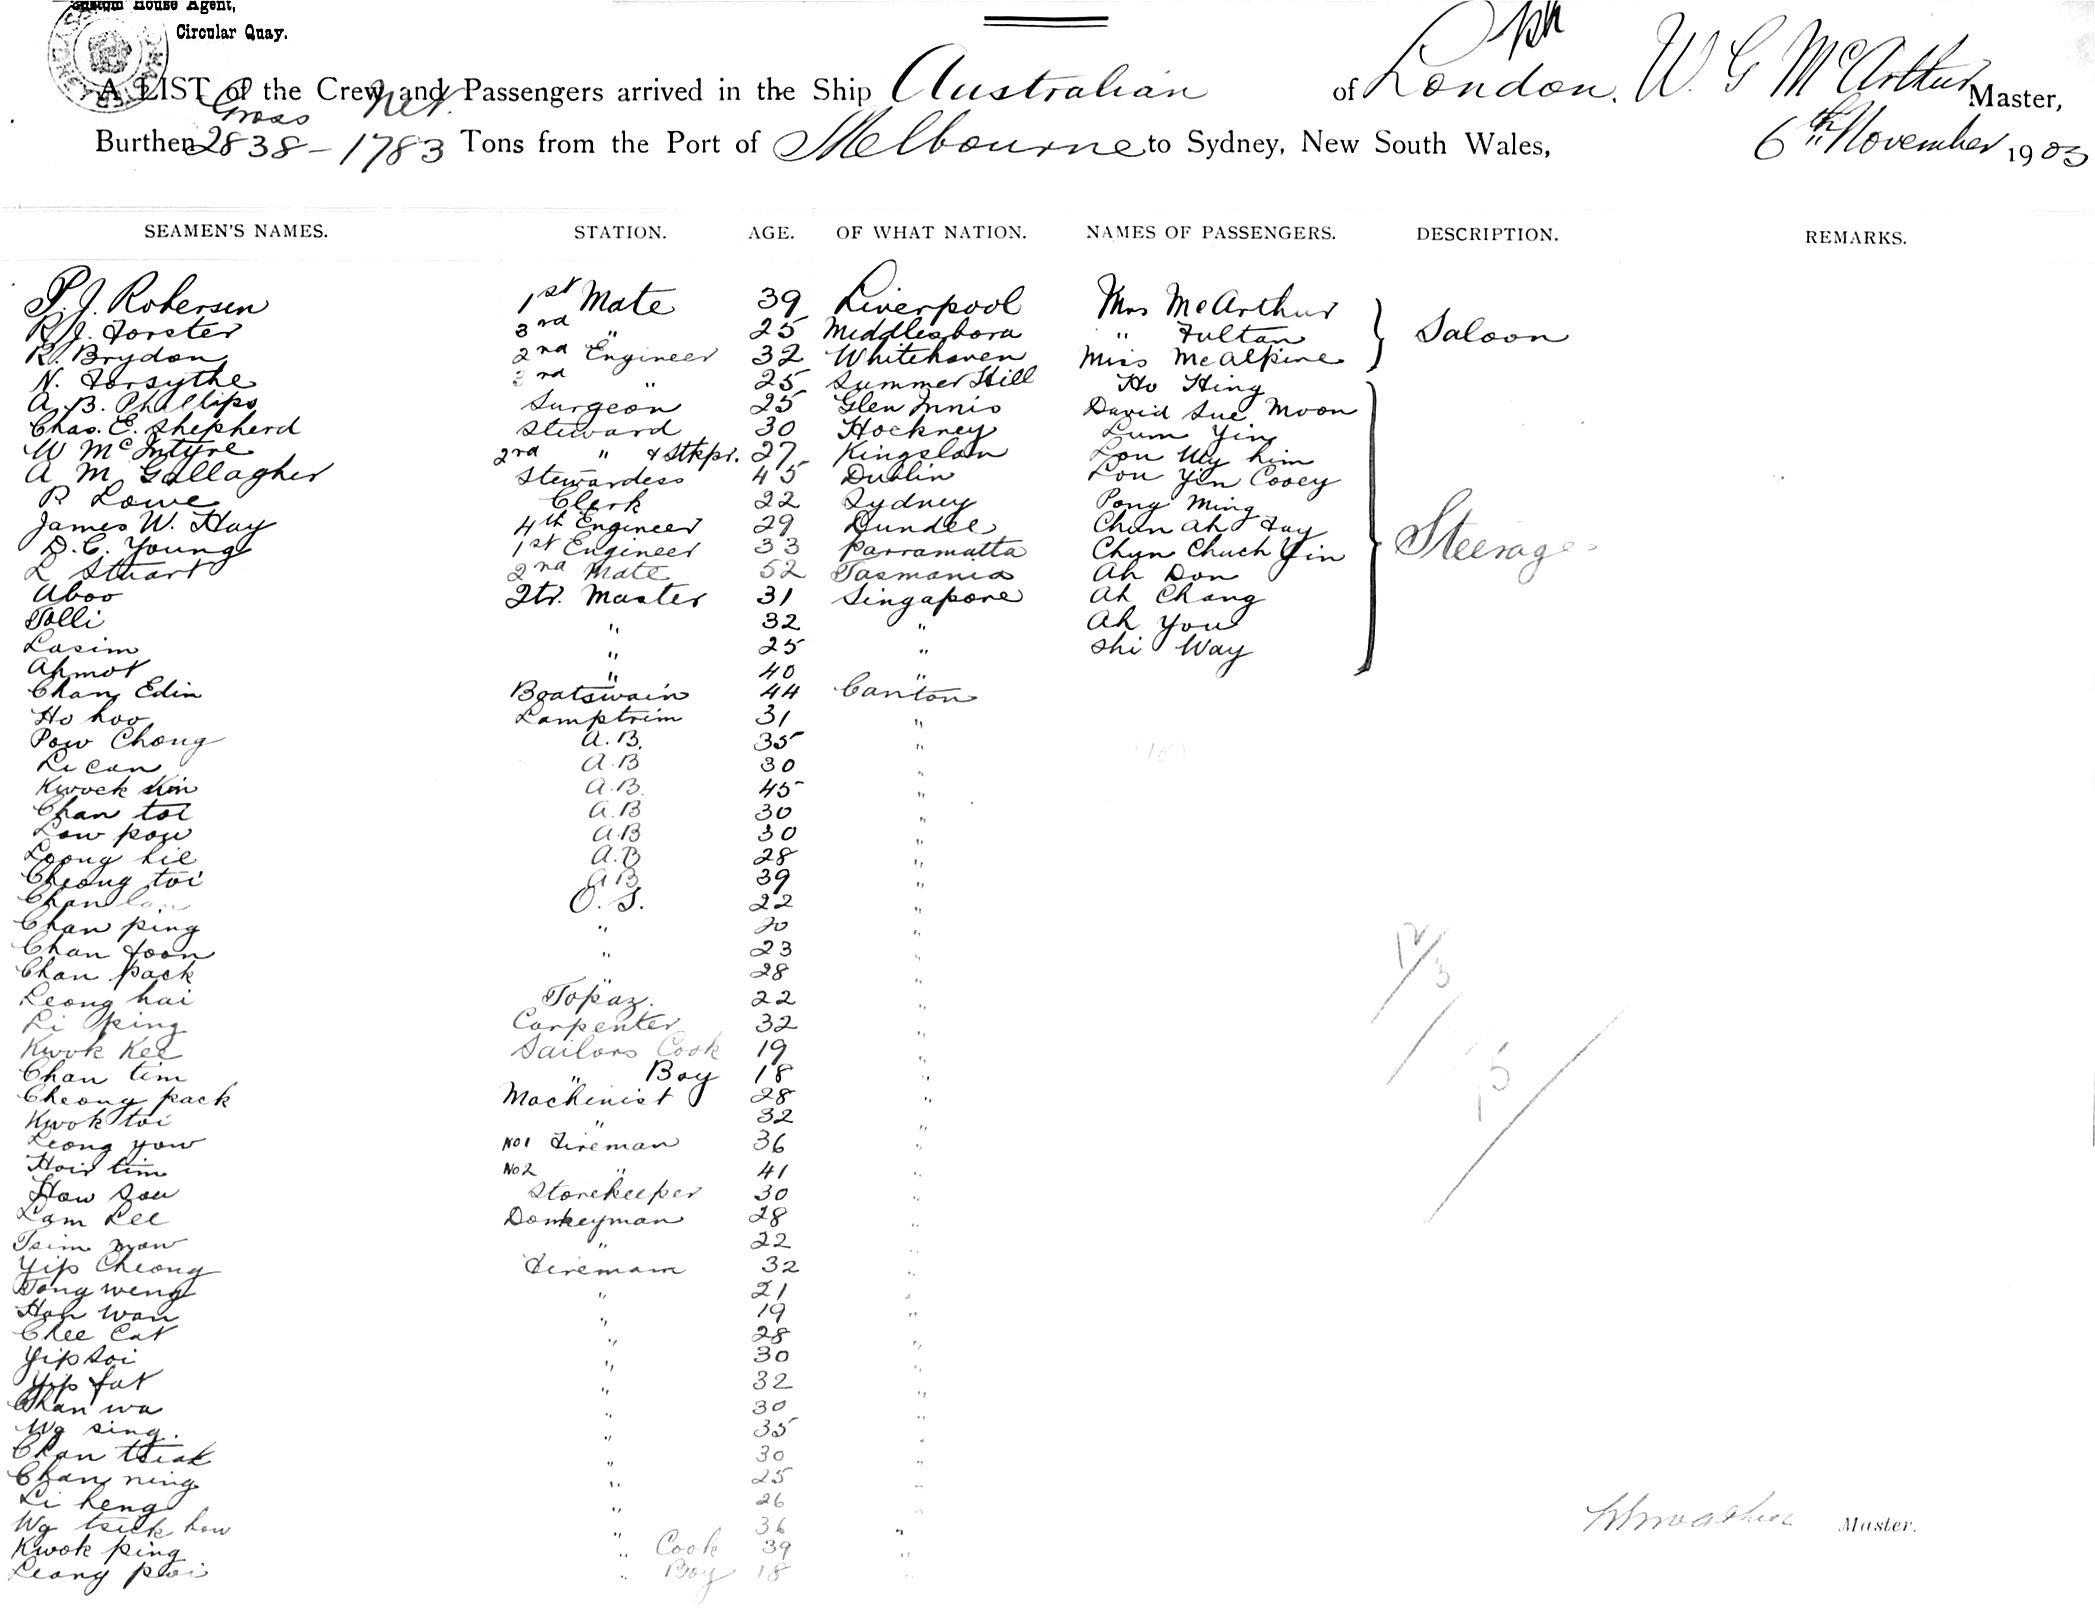 Custom House Agent,
Circular Quay.
A LIST of the Crew and Passengers arrived in the Ship Australian of London, W. G McArthur Master,
Gross Net.
Burthen 2838 - 1783 Tons from the Port of Melbourne to Sydney, New South Wales, 6th November 1903
SEAMEN'S NAMES. STATION. AGE. OF WHAT NATION. NAMES OF PASSENGERS. DESCRIPTION. REMARKS.
P. J. Robersen 1st Mate 39 Liverpool Mrs McArthur
R. J. Forster 3rd " 25 Middlesboro " Fultan Saloon
R. Brydon 2nd Engineer 32 Whitehaven Miss McAlpine
N. Forsythe 3rd " 25 Summer Hill Ho Hing
A. B. Phillips Surgeon 25 Glen Innis David Sue Moon
Chas. E. Shepherd Steward 30 Hockney Lum Yin
W McIntyre 2nd " & Stkpr. 27 Kingslan Lou Wy him
A M Gallagher Stewardess 45 Dublin Lou Yin Cooey
P Lowe Clerk 22 Sydney Pong Ming
James W. Hay 4th Engineer 29 Dundee Chun ah Fay
D. C. Young 1st Engineer 33 Parramatta Chun Chuch Yin Steerage
L Stuart 2nd Mate 52 Tasmania Ah Don
Aboo Qtr. Master 31 Singapore Ah Chang
Tolli " 32 " Ah You
Lasim " 25 " Shi Way
Ahmot " 40 "
Chan Edin Boatswain 44 Canton
Ho hoo Lamptrim 31 "
Pow Chong A.B. 35 "
Li can A.B 30 "
Kwock Kin A.B. 45 "
Chan toi A.B 30 "
Low pow A.B 30 "
Loong hie A.B 28 "
Cheong toi A.B 39 "
Chan O. S. 22 "
Chan ping " 20 "
Chan foon " 23 "
Chan pack " 28 "
Leong hai Topaz. 22 "
Li ping Carpenter 32 "
Kwok Kee Sailors Cook 19 "
Chan tim " Boy 18 "
Cheong pack Machinist 28 "
Kwok toi " 32 "
Leong yow No 1 Fireman 36 "
Hoir tim No 2 " 41 "
How Sou Storekeeper 30 "
Lam Lee Donkeyman 28 "
Tsim mow " 22 "
Yip Cheong Fireman 32 "
Tong weng " 21 "
Hoh wan " 19 "
Chee Cat " 28 "
Yip soi " 30 "
Yip fat " 32 "
Chan wa " 30 "
Wg sing. " 35 "
Chan tsiak " 30 "
Chan ning " 25 "
Li heng " 26 "
Wg tsick how " 36 "
Kwok ping " Cook 39 "
Leong poi " Boy 18 "
12/3
15
Master.